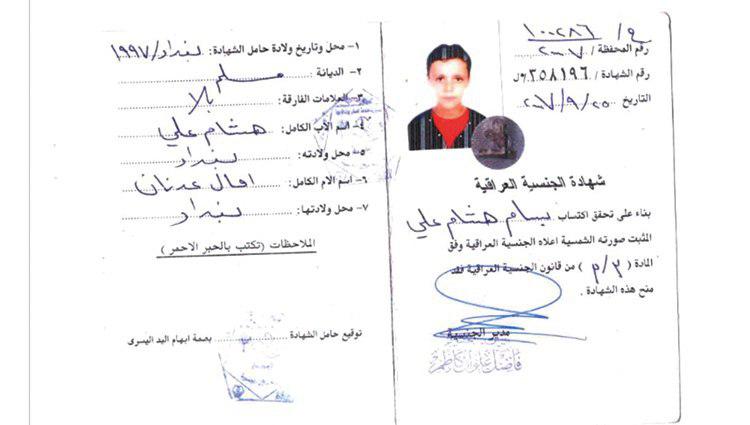 م/ ١٠٠٢٨٦
رقم المحفظة / ٢٠٠٧
رقم الشهادة / ٢٥٨١٩٦
التاريخ ٢٠٠٧/٩/٢٥
شهادة الجنسية العراقية
بناء على تحقق اكتساب بسام هشام علي
المثبت صورته الشمسية اعلاه الجنسية العراقية وفق
المادة (٣/م) من قانون الجنسية العراقية فقد
منح هذه الشهادة .
مدير الجنسية
فاضل علوان كاظم
١- محل وتاريخ ولادة حامل الشهادة: بغداد/١٩٩٧
٢- الديانة مسلم
٣- العلامات الفارقة: بلا
٤- اسم الأب الكامل: هشام علي
٥- محل ولادته: بغداد
٦- اسم الام الكامل: عدنان
٧- محل ولادتها: بغداد
الملاحظات (تكتب بالحبر الاحمر)
توقيع حامل الشهادة بصمة ابهام اليد اليسرى